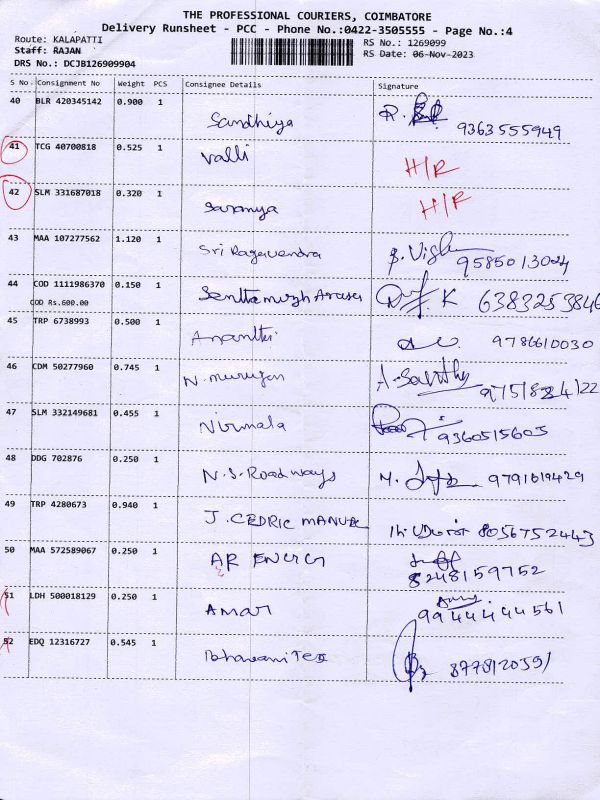 THE PROFESSIONAL COURIERS, COIMBATORE
Delivery Runsheet - PCC - Phone No.:0422-3505555 - Page No.:4
Route: KALAPATTI
RS No.: 1269099
Staff: RAJAN
RS Date: 06-Nov-2023
DRS No.: DCJB126909904
S No Consignment No Weight PCS Consignee Details Signature
40 BLR 420345142 0.900 1 Sandhiya R. 9363555949
41 TCG 40700818 0.525 1 Valli H/R
42 SLM 331687018 0.320 1 Saranya H/R
43 MAA 107277562 1.120 1 Sri Ragavendra 9585013024
44 COD 1111986370 0.150 1 Senthamizh Arasu K 6383253846
COD Rs.600.00
45 TRP 6738993 0.500 1 Ananthi 9786610030
46 CDM 50277960 0.745 1 N. murugan A. 
47 SLM 332149681 0.455 1 Nirmala 9360515605
48 DDG 702876 0.250 1 N.S. Roadways M. 9791619429
49 TRP 4280673 0.940 1 J. CEDRIC MANUEL 8056752443
50 MAA 572589067 0.250 1 AR ENERGY 8248159752
51 LDH 500018129 0.250 1 Amar 9944444561
52 EDQ 12316727 0.545 1 Bhavani Tex 8778120391